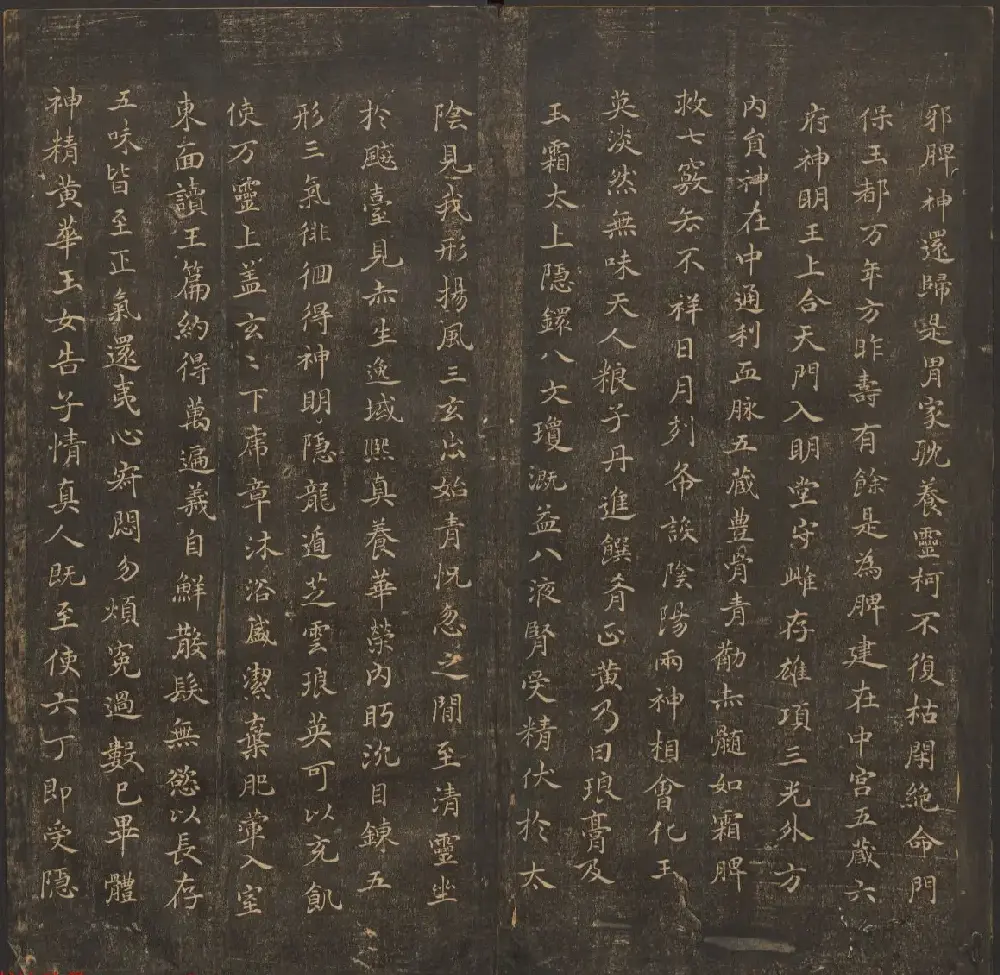 邪脾神還歸是胃家耽養靈柯不復枯閇絶命門
保玉都万年方昨壽有餘是為脾建在中宮五藏六
府神明王上合天門入明堂守雌存雄項三光外方
內負神在中通利血脉五藏豊骨青勸赤髓如霜脾
救七竅去不祥日月列布設陰陽兩神相會化玉
英淡然無味天人粮子丹進饌肴正黄乃曰琅膏及
玉霜太上隱鐶八文瓊溉益八液腎受精伏於太
陰見我形揚風三玄出始青怳忽之間至清靈坐
於飈臺見赤生逸域熙真養華榮內眄沉目錬五
形三氣徘徊得神明隱龍遁芝雲琅英可以充飢
使万靈上盖玄〻下席章沐浴盛潔棄肥薰入室
東面讀王篇約得萬遍義自鮮散髮無慾以長存
五味皆至正氣還夷心寂悶勿煩寃過數已畢體
神精黄華玉女告子情真人既至使六丁即受隱